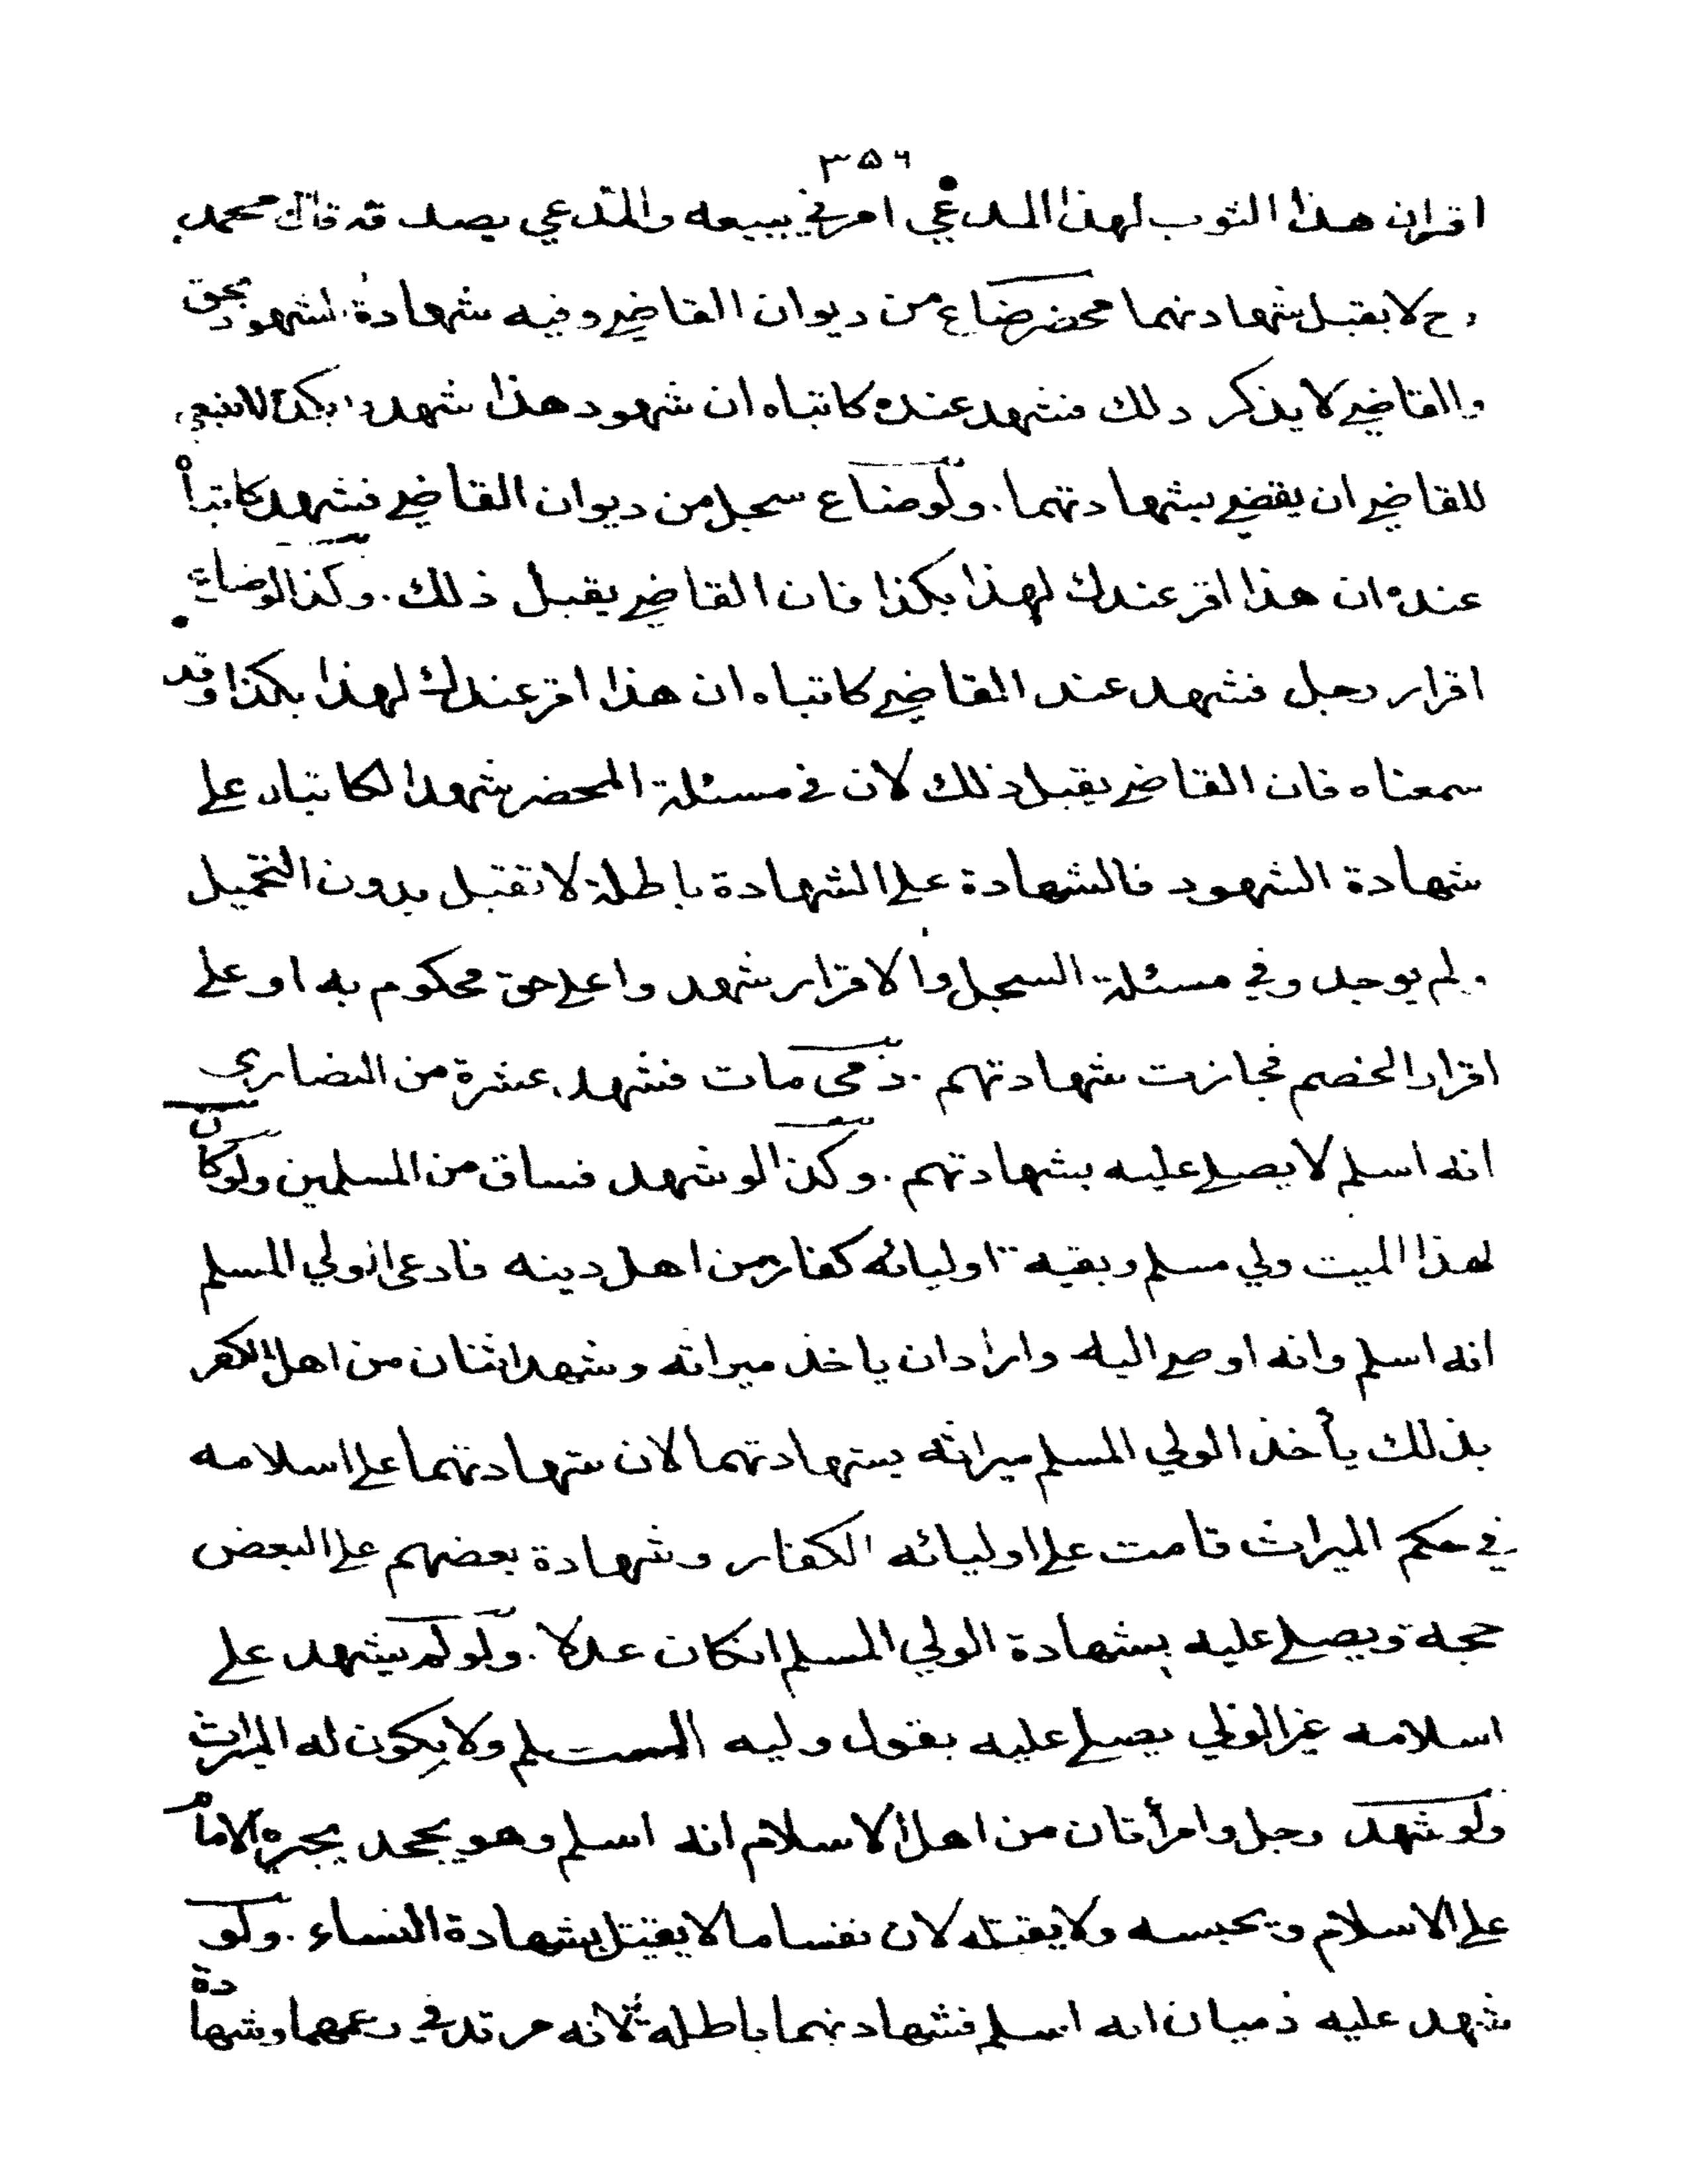 ٣٥٦
اقر ان هذا الثوب لهذا المدعي امرني ببيعه والمدعي يصدقه قال محمد
رح لا يقبل شهادتهما محضر ضاع من ديوان القاضي وفيه شهادة الشهود بحق
والقاضي لا يذكر ذلك فشهد عنده كاتباه ان شهود هذا شهدوا بكذا لا ينبغي
للقاضي ان يقضي بشهادتهما . ولو ضاع سجل من ديوان القاضي فشهد كاتباه
عنده ان هذا اقر عندك لهذا بكذا فان القاضي يقبل ذلك . وكذا لو ضاع
اقرار رجل فشهد عند القاضي كاتباه ان هذا اقر عندك لهذا بكذا وقد
سمعناه فان القاضي يقبل ذلك لان في مسئلة المحضر شهد الكاتبان على
شهادة الشهود فالشهادة على الشهادة باطلة لا تقبل بدون التحميل
ولم يوجد وفي مسئلة السجل والاقرار شهدوا على حق محكوم به او على
اقرار الخصم فجازت شهادتهم . ذمى مات فشهد عشرة من النصارى
انه اسلم لا يصلى عليه بشهادتهم . وكذا لو شهد فساق من المسلمين ولو كان
لهذا الميت ولي مسلم وبقية اوليائه كفار من اهل دينه فادعى الولي المسلم
انه اسلم وانه اوصى اليه واراد ان ياخذ ميراثه وشهد اثنان من اهل الكفر
بذلك يأخذ الولي المسلم ميراثه بشهادتهما لان شهادتهما على اسلامه
في حكم الميراث قامت على اوليائه الكفار وشهادة بعضهم على البعض
حجة ويصلى عليه بشهادة الولي المسلم ان كان عدلا . ولو لم يشهد على
اسلامه غير الولي يصلى عليه بقول وليه المسلم ولا يكون له الميراث
ولو شهد رجل وامرأتان من اهل الاسلام انه اسلم وهو يجحد يجبره الامام
على الاسلام ويحبسه ولا يقتله لان نفسا ما لا يقتل بشهادة النساء . ولو
شهد عليه ذميان انه اسلم فشهادتهما باطلة لانه مرتد في زعمهما وشهادة